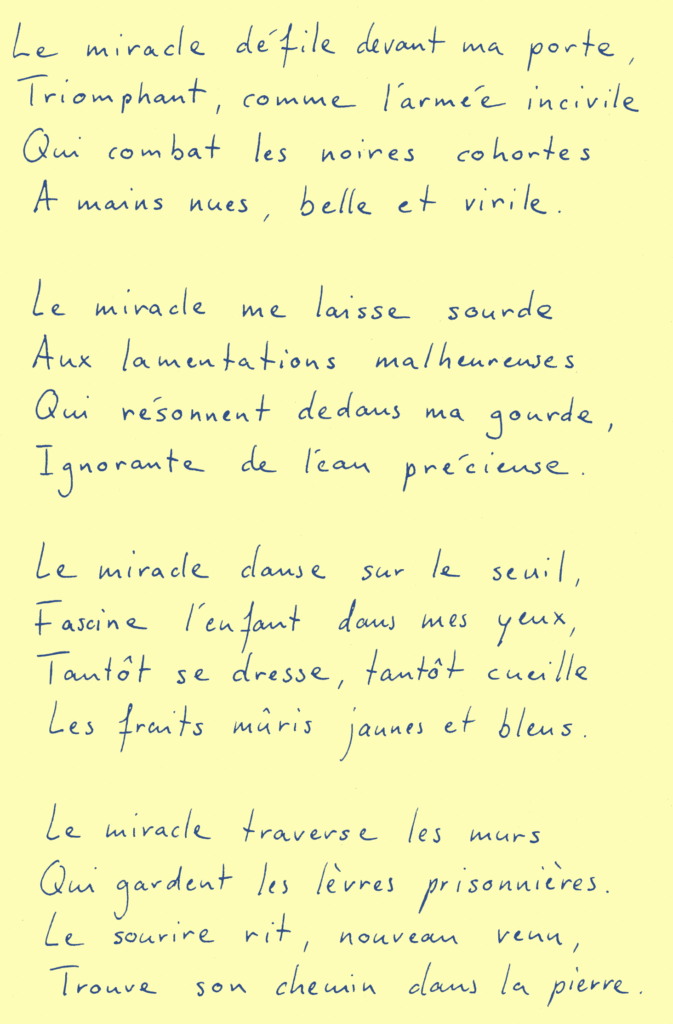 Le miracle défile devant ma porte,
Triomphant, comme l'armée incivile
Qui combat les noires cohortes
A mains nues, belle et virile.
Le miracle me laisse sourde
Aux lamentations malheureuses
Qui résonnent dedans ma gourde,
Ignorante de l'eau précieuse.
Le miracle danse sur le seuil,
Fascine l'enfant dans mes yeux,
Tantôt se dresse, tantôt cueille
Les fruits mûris jaunes et bleus.
Le miracle traverse les murs
Qui gardent les lèvres prisonnières.
Le sourire rit, nouveau venu,
Trouve son chemin dans la pierre.